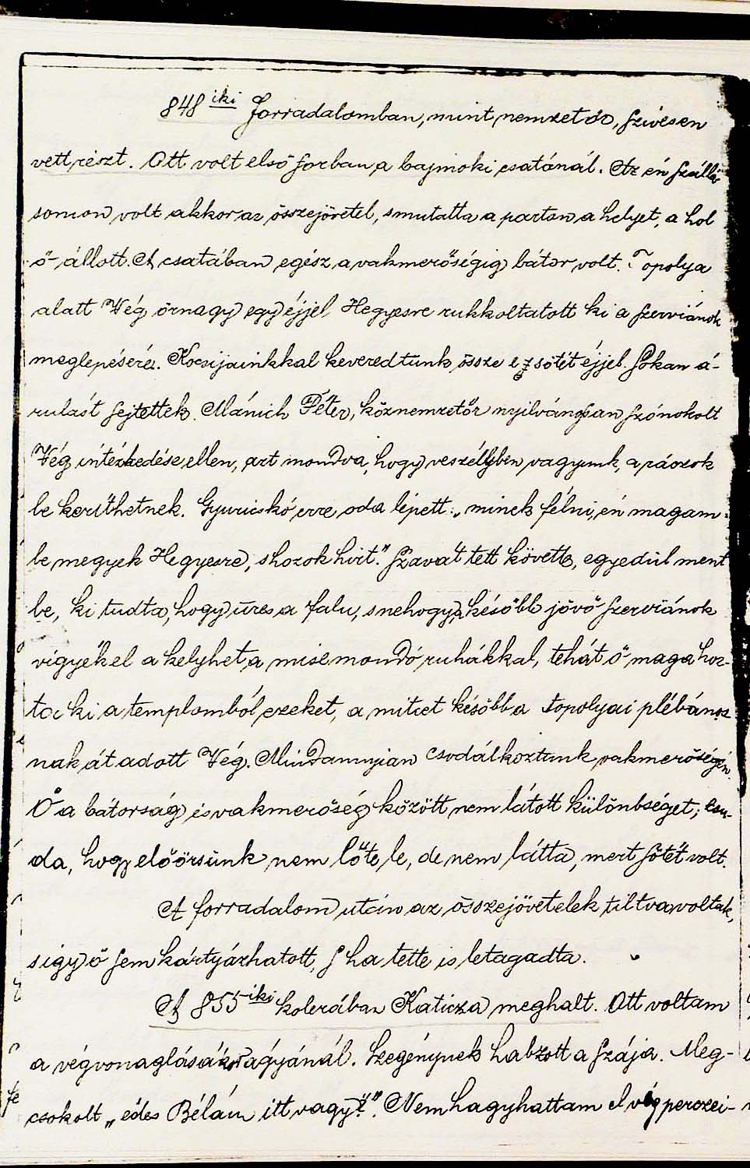 848 iki forradalomban, mint nemzetőr, szivesen
vett részt. Ott volt első sorban a bajmoki csatánál. Az én szállá-
somon volt akkor az összejövetel, s mutatta a parton a helyet, a hol
ő állott. A csatában egész a vakmerőségig bátor volt. Topolya
alatt Vég őrnagy egy éjjel Hegyesre rukkoltatott ki a szerviánok
meglepésére. Kocsijainkkal keveredtünk össze ez sötét éjjel. Sokan á-
rulást sejtettek. Mánich Péter, köznemzetőr nyilvánosan szónokolt
Vég intézkedése ellen, azt mondva, hogy veszélyben vagyunk, a ráczok
be keríthetnek. Gyuricskó erre oda lépett: „minek félni, én magam
be megyek Hegyesre, s hozok hirt." Szavát tett követte, egyedül ment
be, ki tudta, hogy üres a falu, s nehogy a később jövő szerviánok
vigyék el a kelyhet, a misemondó ruhákkal, tehát ő maga hoz-
ta ki a templomból ezeket, a miket később a topolyai plébános
nak át adott Vég. Mindannyian csodálkoztunk vakmerőségén.
Ő a bátorság és vakmerőség között nem látott különbséget; csu-
da, hogy előörsünk nem lőtte le, de nem látta, mert sötét volt.
A forradalom után az összejövetelek tiltva voltak,
s igy ő sem kártyázhatott, s ha tette is letagadta.
A 855 iki kolerában Katicza meghalt. Ott voltam
a végvonaglásakor ágyánál. Szegénynek habzott a szája. Meg-
csokolt „édes Bélám itt vagy?". Nem hagyhattam el vég perczei-